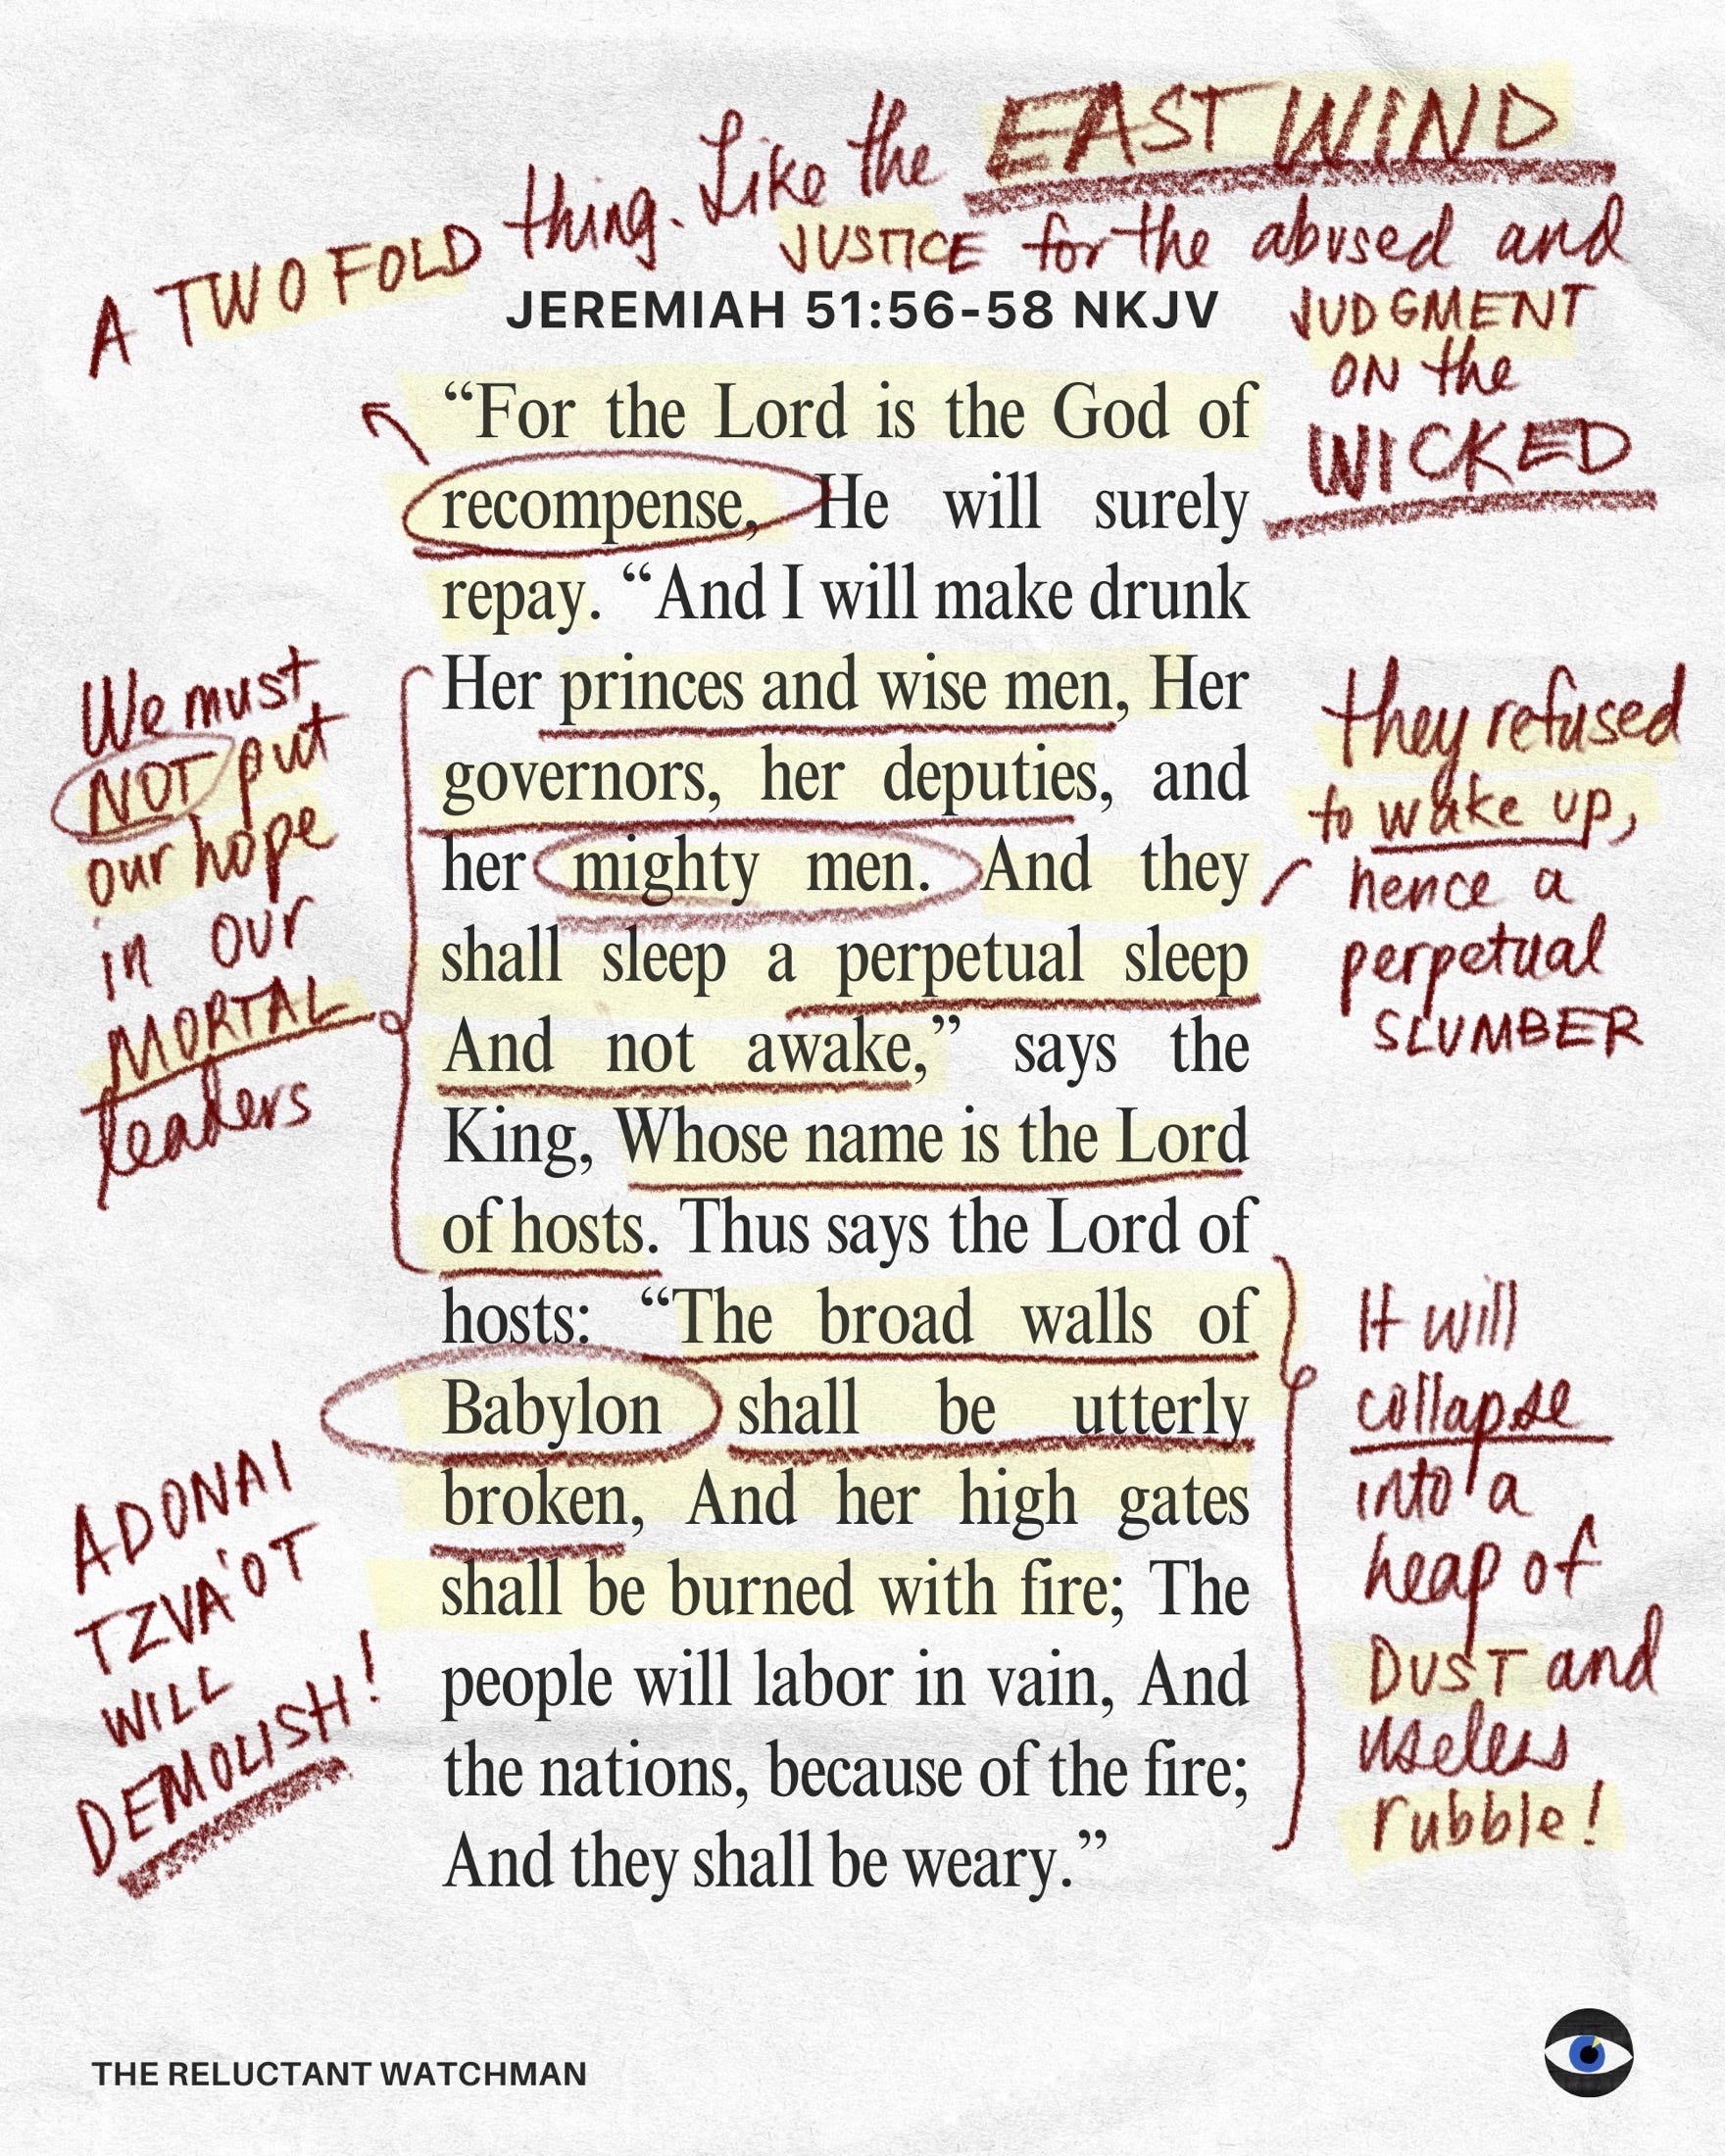 A TWO FOLD thing. Like the EAST WIND
JUSTICE for the abused and
JUDGMENT
ON the
WICKED
JEREMIAH 51:56-58 NKJV
“For the Lord is the God of
recompense, He will surely
repay. “And I will make drunk
Her princes and wise men, Her
governors, her deputies, and
her mighty men. And they
shall sleep a perpetual sleep
And not awake,” says the
King, Whose name is the Lord
of hosts. Thus says the Lord of
hosts: “The broad walls of
Babylon shall be utterly
broken, And her high gates
shall be burned with fire; The
people will labor in vain, And
the nations, because of the fire;
And they shall be weary.”
We must
NOT put
our hope
in our
MORTAL
leaders
they refused
to wake up,
hence a
perpetual
SLUMBER
ADONAI
TZVA'OT
WILL
DEMOLISH!
It will
collapse
into a
heap of
DUST and
useless
rubble!
THE RELUCTANT WATCHMAN